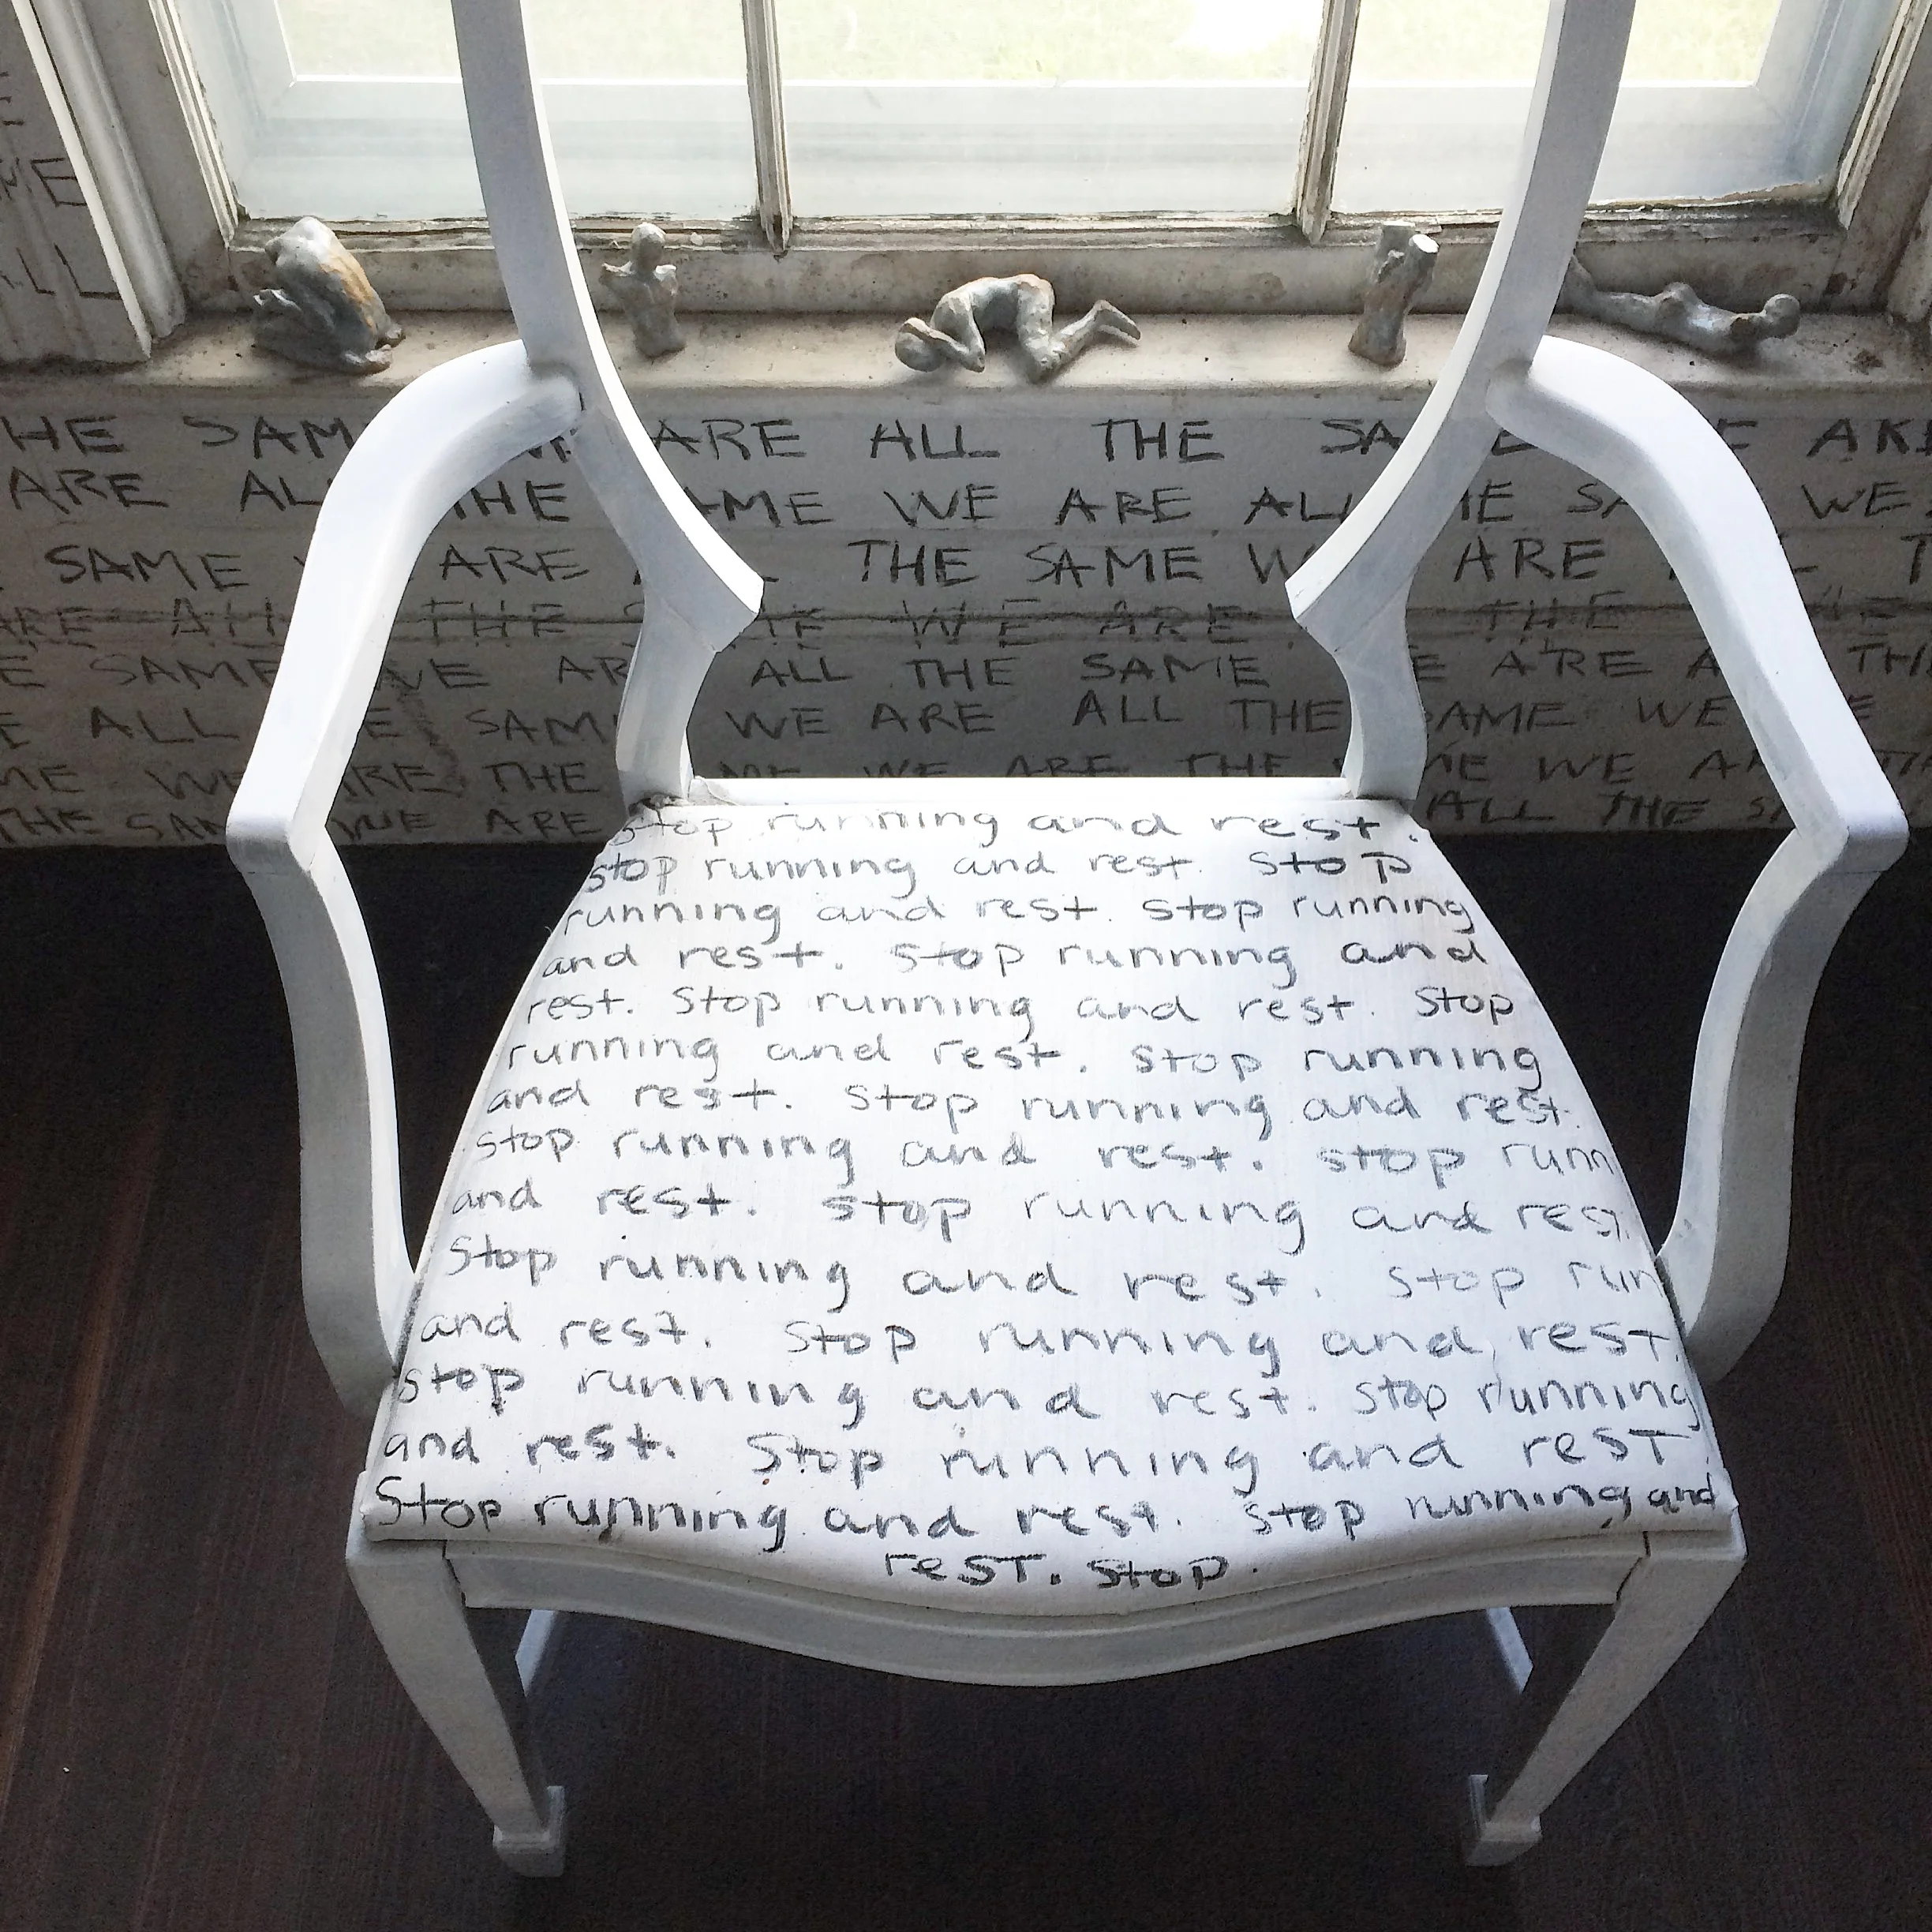 ME
ALL
HE SAM ARE ALL THE SA E ARE
ARE AL THE AME WE ARE ALL HE SA WE
SAME ARE THE SAME W ARE T
ARE ALL THE S WE ARE THE
E SAME WE AR ALL THE SAME E ARE A TH
E ALL E SAM WE ARE ALL THE SAME WE E
ME WE ARE THE ME WE ARE THE ME WE A
THE SAM WE ARE ALL THE SA
stop running and rest.
stop running and rest. Stop
running and rest. stop running
and rest. stop running and
rest. Stop running and rest. Stop
running and rest. stop running
and rest. stop running and rest.
stop running and rest. stop runn
and rest. stop running and rest.
stop running and rest. stop run
and rest. stop running and rest.
stop running and rest. stop running
and rest. stop running and resT
Stop running and rest. stop running and
resT. stop.